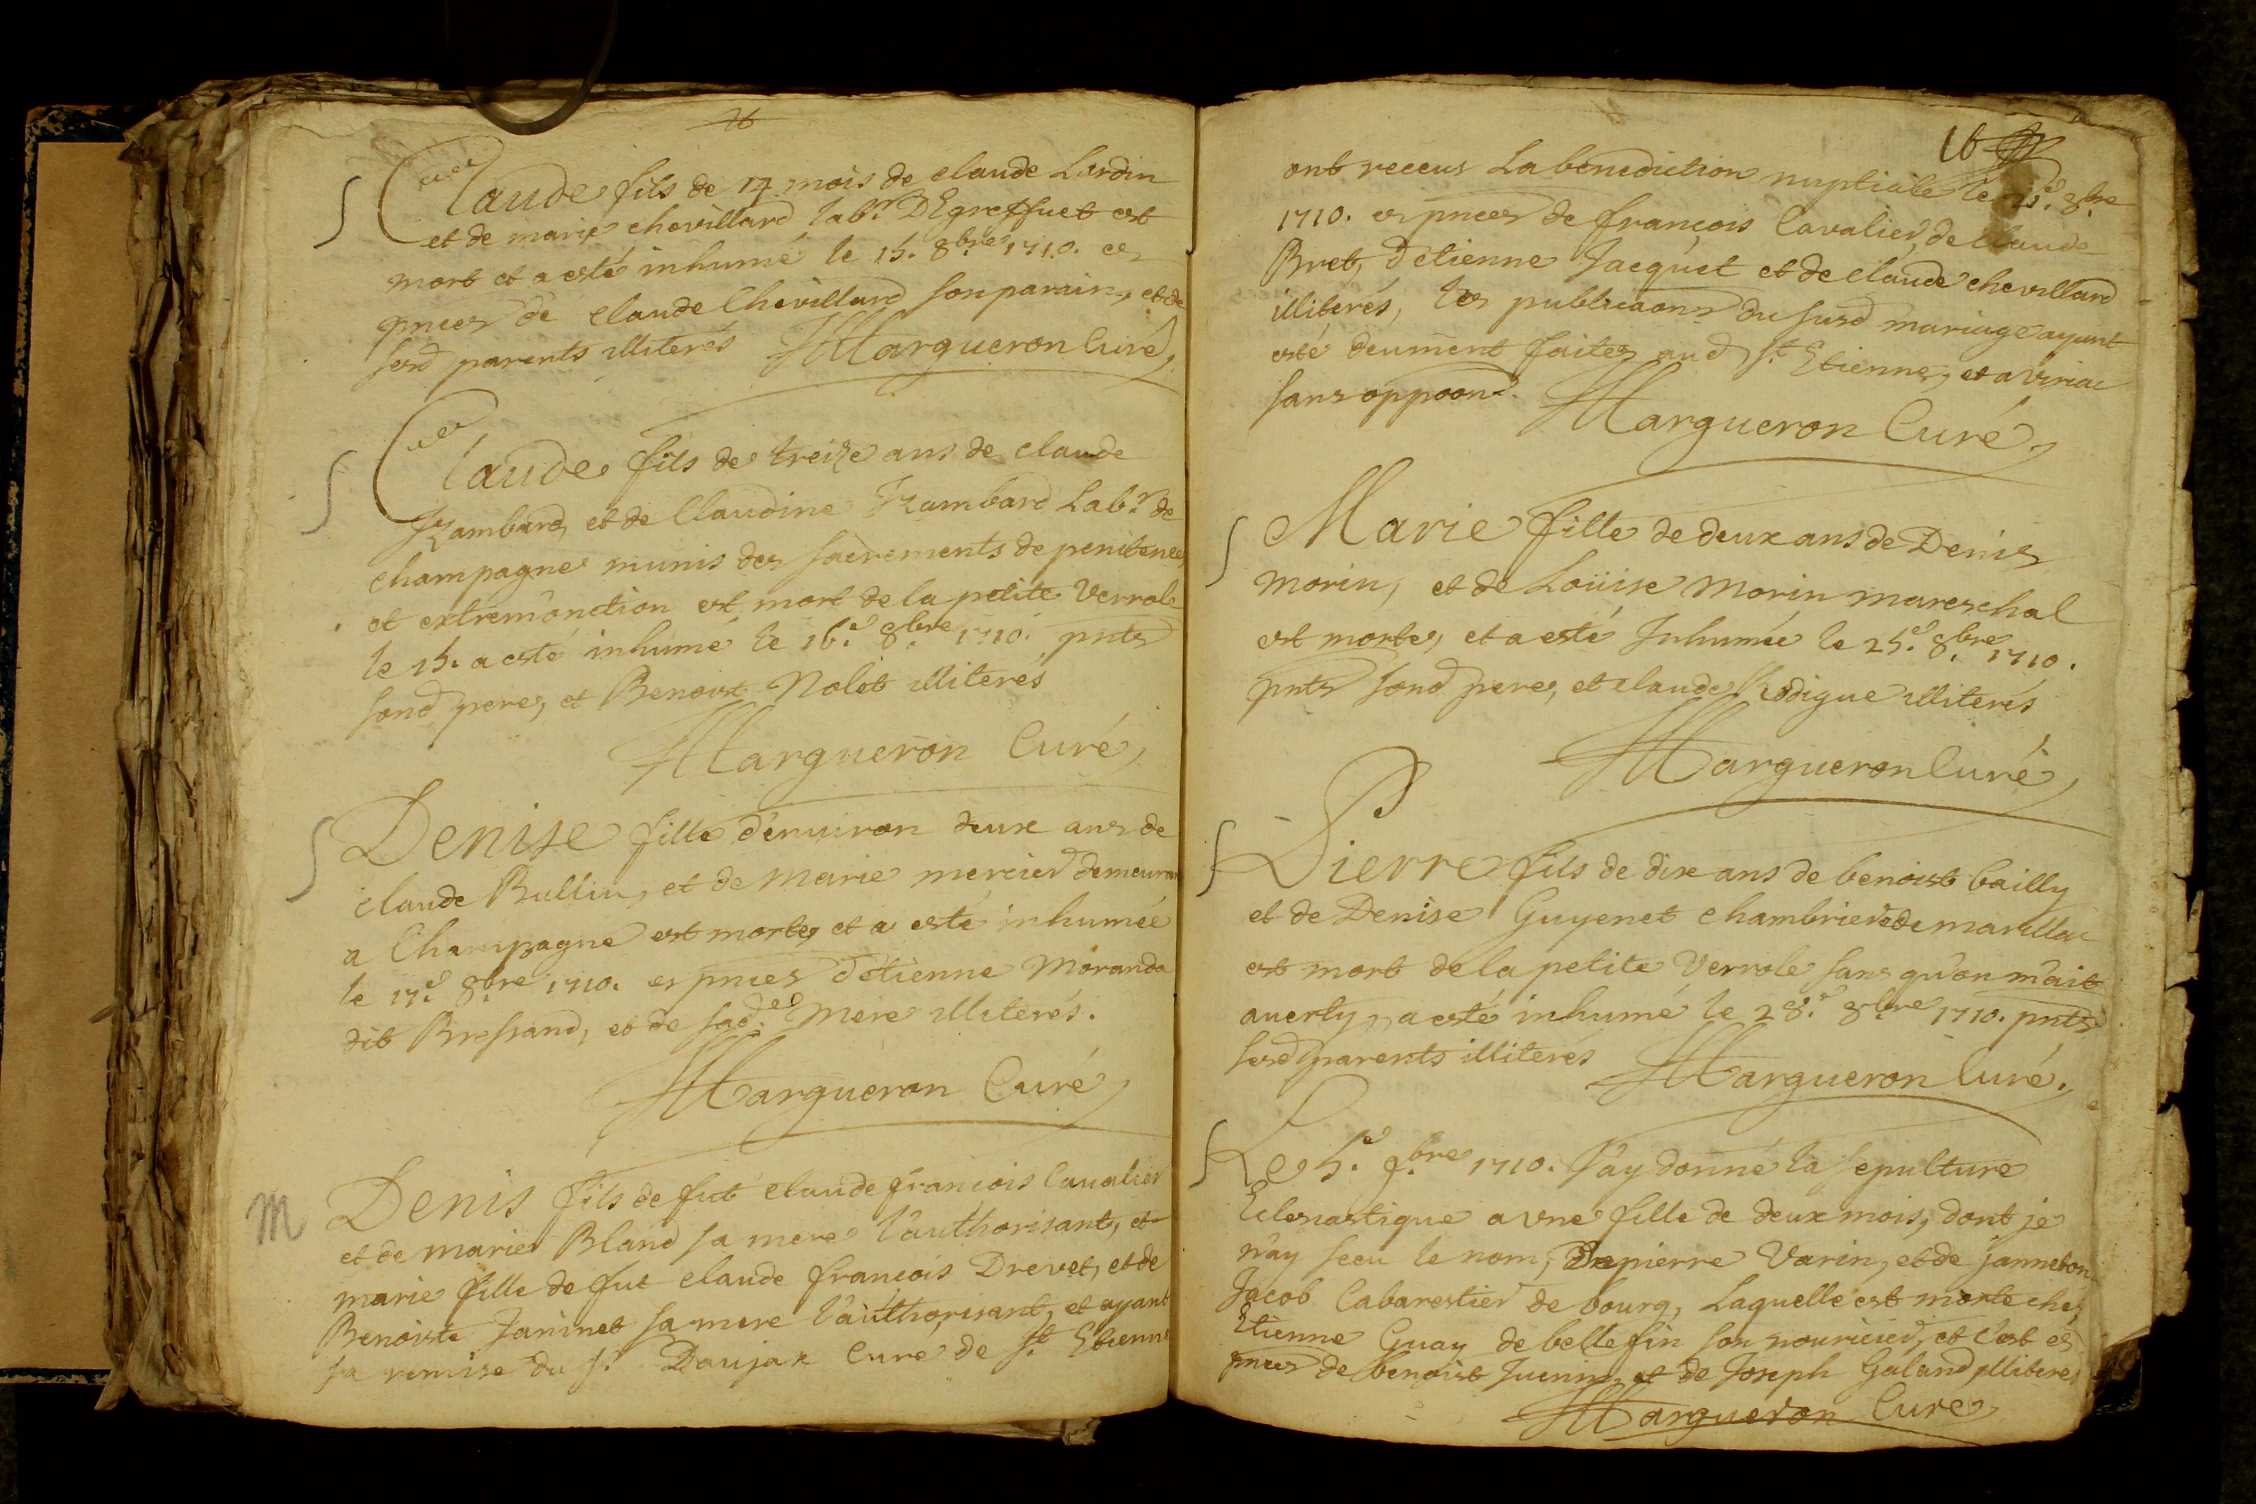 26
Claude fils de 14 mois de claude Lardin
et de marie chevillard lab.r D'Egreffuet est
mort et a esté inhumé le 15. 8.bre 1710. es
pnces de claude Chevillard son parain, et de
sesd parents illiterés Margueron Curé,
Claude fils de treize ans de claude
Rambard, et de Claudine Rambard Lab.r de
champagne munis des sacrements de penitence,
et extremonction est mort de la petite Verrole
le 15. a esté inhumé le 16.e 8.bre 1710. pnts
sond pere, et Benoist Nolet illiterés
Margueron Curé,
Denise fille d'enuiron deux ans de
claude Bullin, et de marie mercier demeurant
a Champagne est morte, et a esté inhumée
le 17.e 8.bre 1710. es pnces d'étienne Moranda
dit Bressand, et de sad.e mere illiterés.
Margueron Curé,
M
Denis fils de fut claude françois Caualier
et de marie Bland sa mere l'authorisant, et
marie fille de fut claude françois Drevet, et de
Benoiste Janinet sa mere l'authorisant, et ayant
sa remise du s.r Daujax Curé de s.t Etienne
16
ont receus La benediction nuptiale le 8.bre
1710. es pnces de françois Cavalier, de Claude
Bret, d'etienne Jacquet et de claude chevillard
illiterés, les publicaons du susd mariage ayant
esté deument faites aud s.t Etienne, et a Viriac
sans oppoon.
Margueron Curé,
Marie fille de deux ans de Denis
morin, et de Loüise morin mareschal
est morte, et a esté Inhumée le 25.e 8.bre 1710.
pnts sond pere, et claude Rodigue illiterés
Margueron Curé,
Pierre fils de dix ans de benoist bailly
et de Denise Guyenet chambriere de marillac
est mort de la petite Verrole sans qu'on m'ait
auerty, a esté inhumé le 28.e 8.bre 1710. pnts
sesd parents illiterés Margueron Curé,
Le 5.e 9.bre 1710. J'ay donné la sepulture
Eclesiastique a vne fille de deux mois, dont je
n'ay sceu le nom, De pierre Varin, et de janneton
Jacob Cabarestier de bourg, Laquelle est morte chez
Etienne Guay de bellefin son nouricier, et c'est es
pnces de benoist Juenin, et de Joseph Galand illiterés
Margueron Curé,